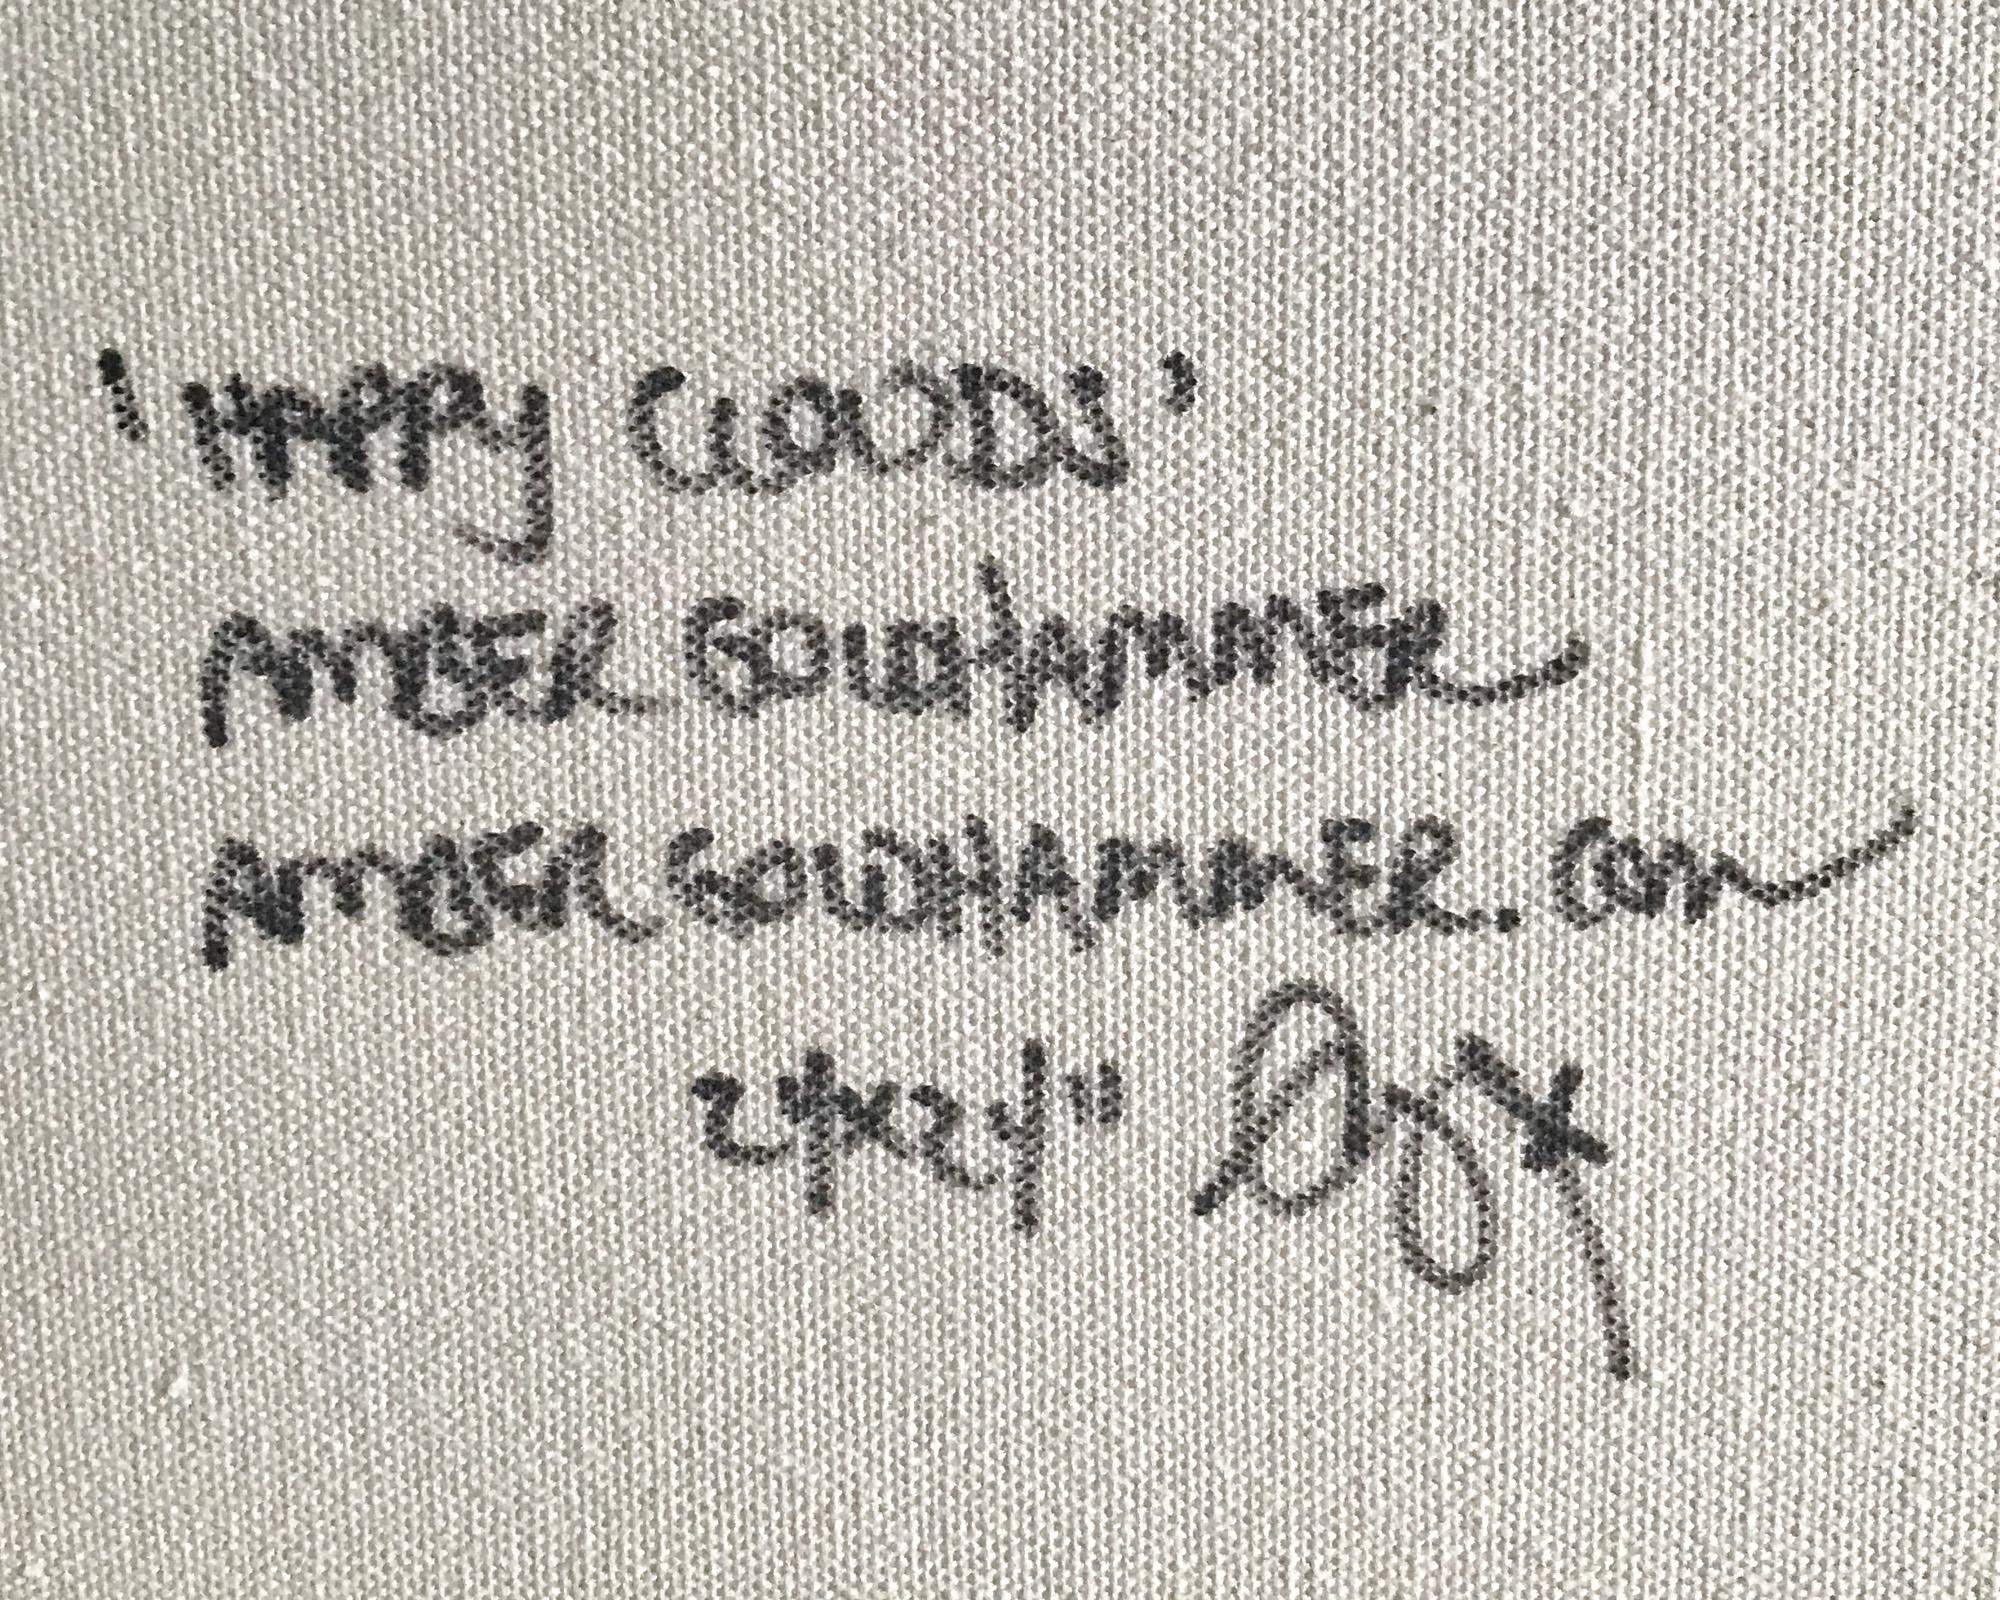 'HAPPY CLOUDS'
AMBER GOLDHAMMER
AMBERGOLDHAMMER.COM
24x24"